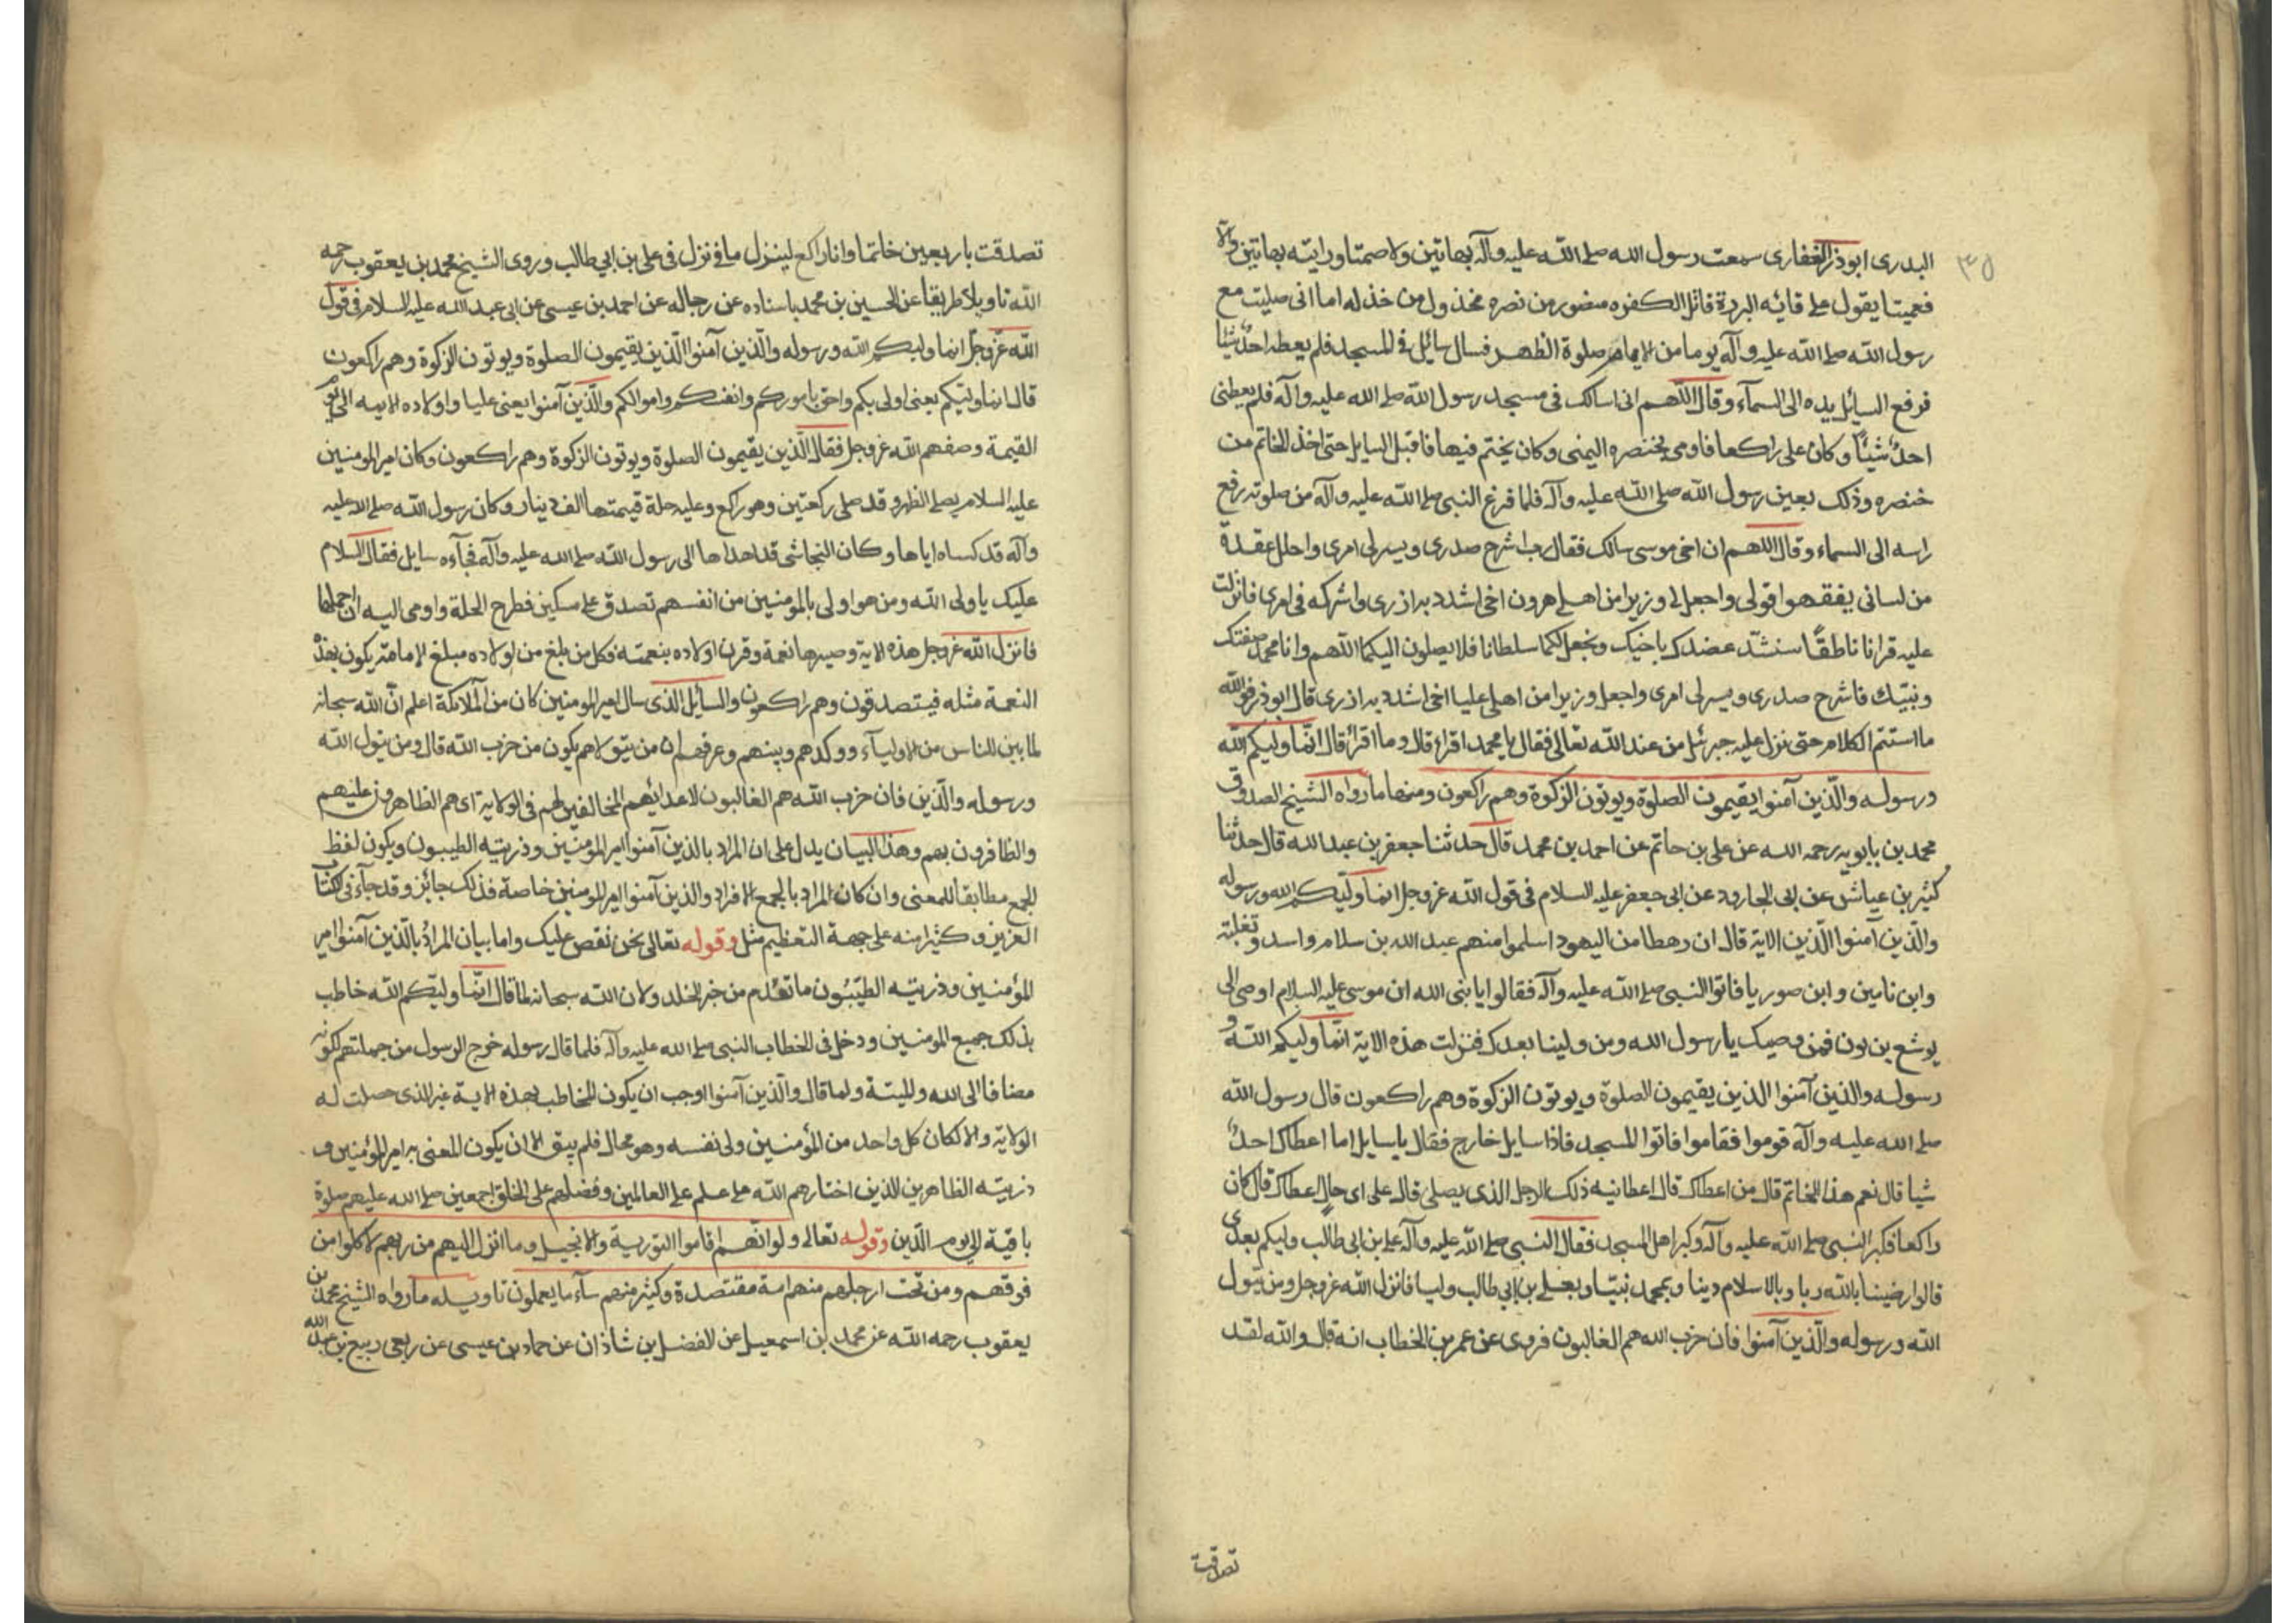 ٣٥
البدرى ابوذر الغفارى سمعت رسول الله صلى الله عليه وآله بهاتين ولا صمتا ورايته بهاتين والا
فعميتا يقول على قايد البررة قاتل الكفره منصور من نصره مخذول من خذله اما انى صليت مع
رسول الله صلى الله عليه وآله يوما من الايام صلوة الظهر فسال سائل فى المسجد فلم يعطه احد شيئا
فرفع السايل يده الى السمآء وقال اللهم انى اسالك فى مسجد رسول الله صلى الله عليه وآله فلم يعطنى
احد شيئاً وكان على راكعا فاومى بخنصره اليمنى وكان يختم فيها فاقبل السايل حتى اخذ الخاتم من
خنصره وذلك بعين رسول الله صلى الله عليه وآله فلما فرغ النبى صلى الله عليه وآله من صلوته رفع
راسه الى السماء وقال اللهم ان اخى موسى سالك فقال رب اشرح صدرى ويسر لى امرى واحلل عقدة
من لسانى يفقهوا قولى واجعل لى وزيرا من اهلى هرون اخى اشدد به ازرى واشركه فى امرى فانزلت
عليه قرانا ناطقاً سنشد عضدك باخيك ونجعل لكما سلطانا فلا يصلون اليكما اللهم وانا محمد صفيك
ونبيك فاشرح صدرى ويسر لى امرى واجعل وزيرا من اهلى عليا اخى اشدد به ازرى قال ابوذر فوالله
ما استتم الكلام حتى نزل عليه جبرئيل من عند الله تعالى فقال يا محمد اقراء قال وما اقرأ قال انما وليكم الله
ورسوله والذين آمنوا يقيمون الصلوة ويوتون الزكوة وهم راكعون ومنها ما رواه الشيخ الصدوق
محمد بن بابويه رحمه الله عن على بن حاتم عن احمد بن محمد قال حدثنا جعفر بن عبد الله قال حدثنا
كثير بن عياش عن ابى الجارود عن ابى جعفر عليه السلام فى قول الله عز وجل انما وليكم الله ورسوله
والذين آمنوا الذين الاية قال ان رهطا من اليهود اسلموا منهم عبد الله بن سلام واسد وثعلبة
وابن يامين وابن صوريا فاتوا النبى صلى الله عليه وآله فقالوا يا نبى الله ان موسى عليه السلام اوصى الى
يوشع بن نون فمن وصيك يا رسول الله ومن ولينا بعدك فنزلت هذه الاية انما وليكم الله و
رسوله والذين آمنوا الذين يقيمون الصلوة ويوتون الزكوة وهم راكعون قال رسول الله
صلى الله عليه وآله قوموا فقاموا فاتوا المسجد فاذا سايل خارج فقال يا سايل اما اعطاك احد
شيا قال نعم هذا الخاتم قال من اعطاك قال اعطانيه ذلك الرجل الذى يصلى قال على اى حال اعطاك قال كان
راكعا فكبر النبى صلى الله عليه وآله وكبر اهل المسجد فقال النبى صلى الله عليه وآله على بن ابى طالب وليكم بعدى
قالوا رضينا بالله ربا وبالاسلام دينا وبمحمد نبيا وبعلى بن ابى طالب وليا فانزل الله عز وجل ومن يتول
الله ورسوله والذين آمنوا فان حزب الله هم الغالبون فروى عن عمر بن الخطاب انه قال والله لقد
تصدقت
تصدقت باربعين خاتما وانا راكع لينزل فى ما نزل فى على بن ابى طالب وروى الشيخ محمد بن يعقوب رحمه
الله تاويلا طريقا عن الحسين بن محمد باسناده عن رجاله عن احمد بن عيسى عن ابى عبد الله عليه السلام فى قول
الله عز وجل انما وليكم الله ورسوله والذين آمنوا الذين يقيمون الصلوة ويوتون الزكوة وهم راكعون
قال انما وليكم يعنى اولى بكم واحق باموركم وانفسكم واموالكم والذين آمنوا يعنى عليا واولاده الايمه الى يوم
القيمة وصفهم الله عز وجل فقال الذين يقيمون الصلوة ويوتون الزكوة وهم راكعون وكان امير المومنين
عليه السلام يصلى الظهر وقد صلى ركعتين وهو راكع وعليه حلة قيمتها الف دينار وكان رسول الله صلى الله عليه
وآله قد كساه اياها وكان النجاشى قد اهداها الى رسول الله صلى الله عليه وآله فجآءه سايل فقال السلام
عليك يا ولى الله ومن هو اولى بالمومنين من انفسهم تصدق على مسكين فطرح الحلة واومى اليه ان احملها
فانزل الله عز وجل هذه الاية وصيرها نعمة وقرن اولاده بنعمته فكل من بلغ من اولاده مبلغ الامامة يكون بهذه
النعمة مثله فيتصدقون وهم راكعون والسايل الذى سال امير المومنين كان من الملائكة اعلم ان الله سبحانه
لما بين للناس من الاوليآء ووكدهم وبينهم وعرفهم ان من يتولاهم يكون من حزب الله قال ومن يتول الله
ورسوله والذين فان حزب الله هم الغالبون لاعدائهم المخالفين لهم فى الولاية اى هم الظاهرون عليهم
والظافرون بهم وهذا البيان يدل على ان المراد بالذين آمنوا امير المومنين وذريته الطيبون ويكون لفظ
الجمع مطابقا للمعنى وان كان المراد بالجمع الافراد والذين آمنوا امير المومنين خاصة فذلك جائز وقد جآء فى الكتاب
العزيز وكثير منه على جهة التعظيم مثل وقوله تعالى نحن نقص عليك واما بيان المراد بالذين آمنوا امير
المؤمنين وذريته الطيبون ما تقدم من خبر الخلد ولان الله سبحانه لما قال انما وليكم الله خاطب
بذلك جميع المومنين ودخل فى الخطاب النبى صلى الله عليه وآله فلما قال رسوله خرج الرسول من جملتهم لكونه
مضافا الى الله والميتة ولما قال والذين آمنوا اوجب ان يكون المخاطب بهذه الاية غير الذى حصلت له
الولاية والا لكان كل واحد من المؤمنين ولى نفسه وهو محال فلم يبق الا ان يكون المعنى به امير المؤمنين و
ذريته الطاهرين الذين اختارهم الله على علم على العالمين وفضلهم على الخلق اجمعين صلى الله عليهم صلوة
باقية الى يوم الدين وقوله تعالى ولو انهم اقاموا التورية والانجيل وما انزل اليهم من ربهم لاكلوا من
فوقهم ومن تحت ارجلهم منهم امة مقتصدة وكثير منهم سآء ما يعملون تاويله ما رواه الشيخ محمد بن
يعقوب رحمه الله عن محمد بن اسمعيل عن الفضل بن شاذان عن حماد بن عيسى عن ربعى ربيع بن عبد الله